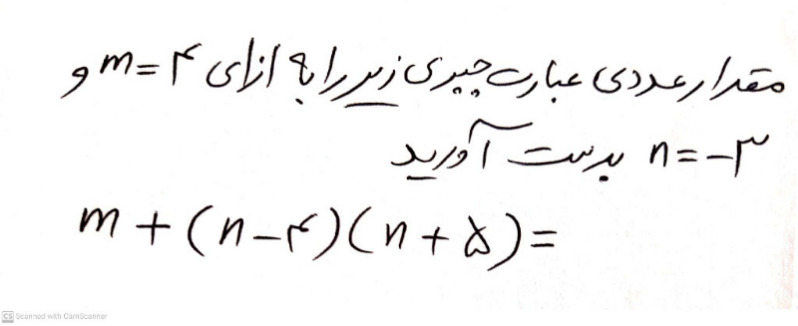 مقدار عددی عبارت جبری زیر را به ازای m=۴ و
n=-۳ بدست آورید
m+(n-۴)(n+۵)=
CS Scanned with CamScanner